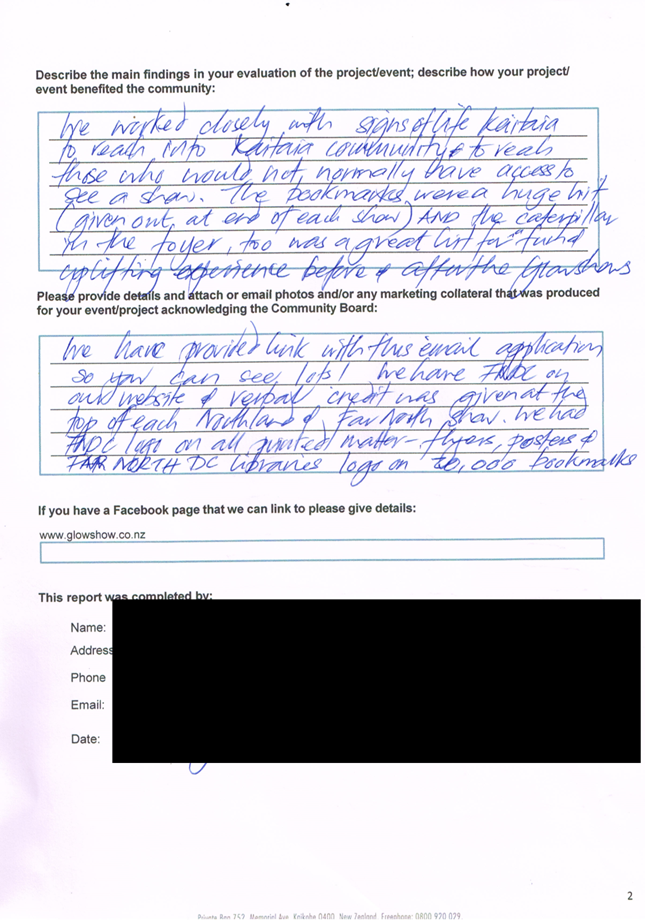 Describe the main findings in your evaluation of the project/event; describe how your project/
event benefited the community:
We worked closely with signs of life Kaitaia
to reach into Kaitaia community & to reach
those who would not normally have access to
see a show. The bookmarks were a huge hit
(given out at end of each show) AND the caterpillar
in the foyer, too was a great for fun &
uplifting experience before & after the glowshows
Please provide details and attach or email photos and/or any marketing collateral that was produced
for your event/project acknowledging the Community Board:
We have provided link with this email application
so you can see lots! We have FNDC on
our website & verbal credit was given at the
top of each Northland & Far North show. We had
FNDC logo on all printed matter - flyers, posters &
FAR NORTH DC Libraries logo on 000 bookmarks
If you have a Facebook page that we can link to please give details:
www.glowshow.co.nz
This report was completed by:
Name:
Address
Phone
Email:
Date:
2
Private Bag 752, Memorial Ave, Kaikohe 0400, New Zealand, Freephone: 0800 920 029